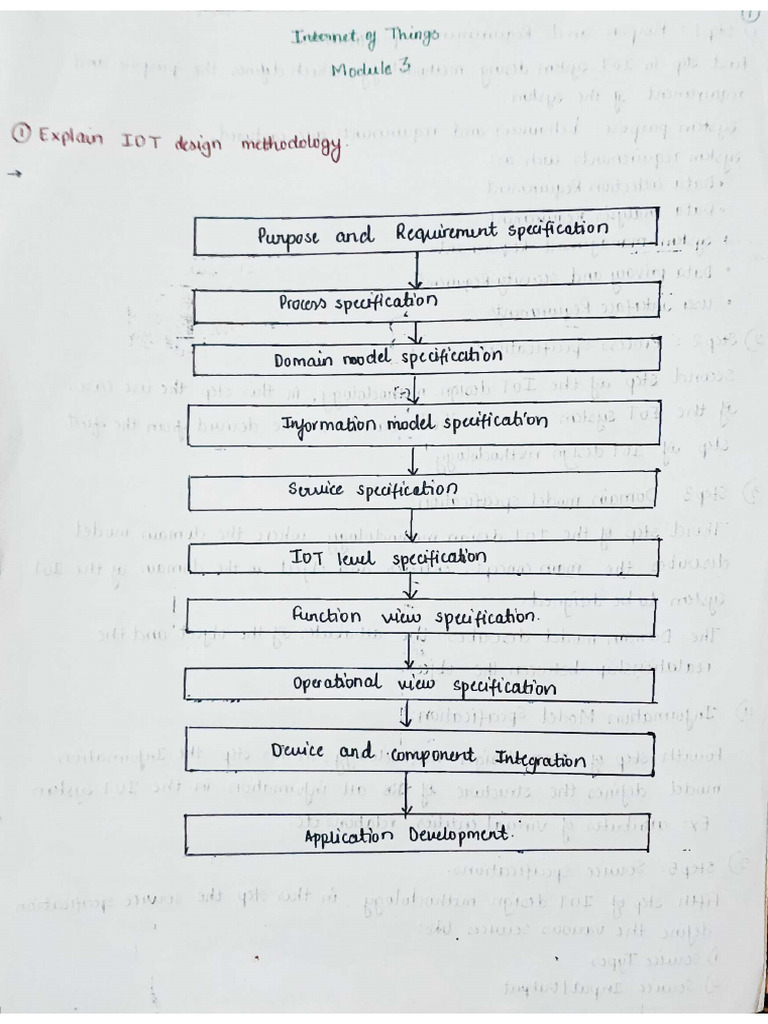 Internet of Things
Module 3
① Explain IOT design methodology.
→
Purpose and Requirement specification
Process specification
Domain model specification
Information model specification
Service specification
IOT level specification
Function view specification.
Operational view specification
Device and component Integration
Application Development.